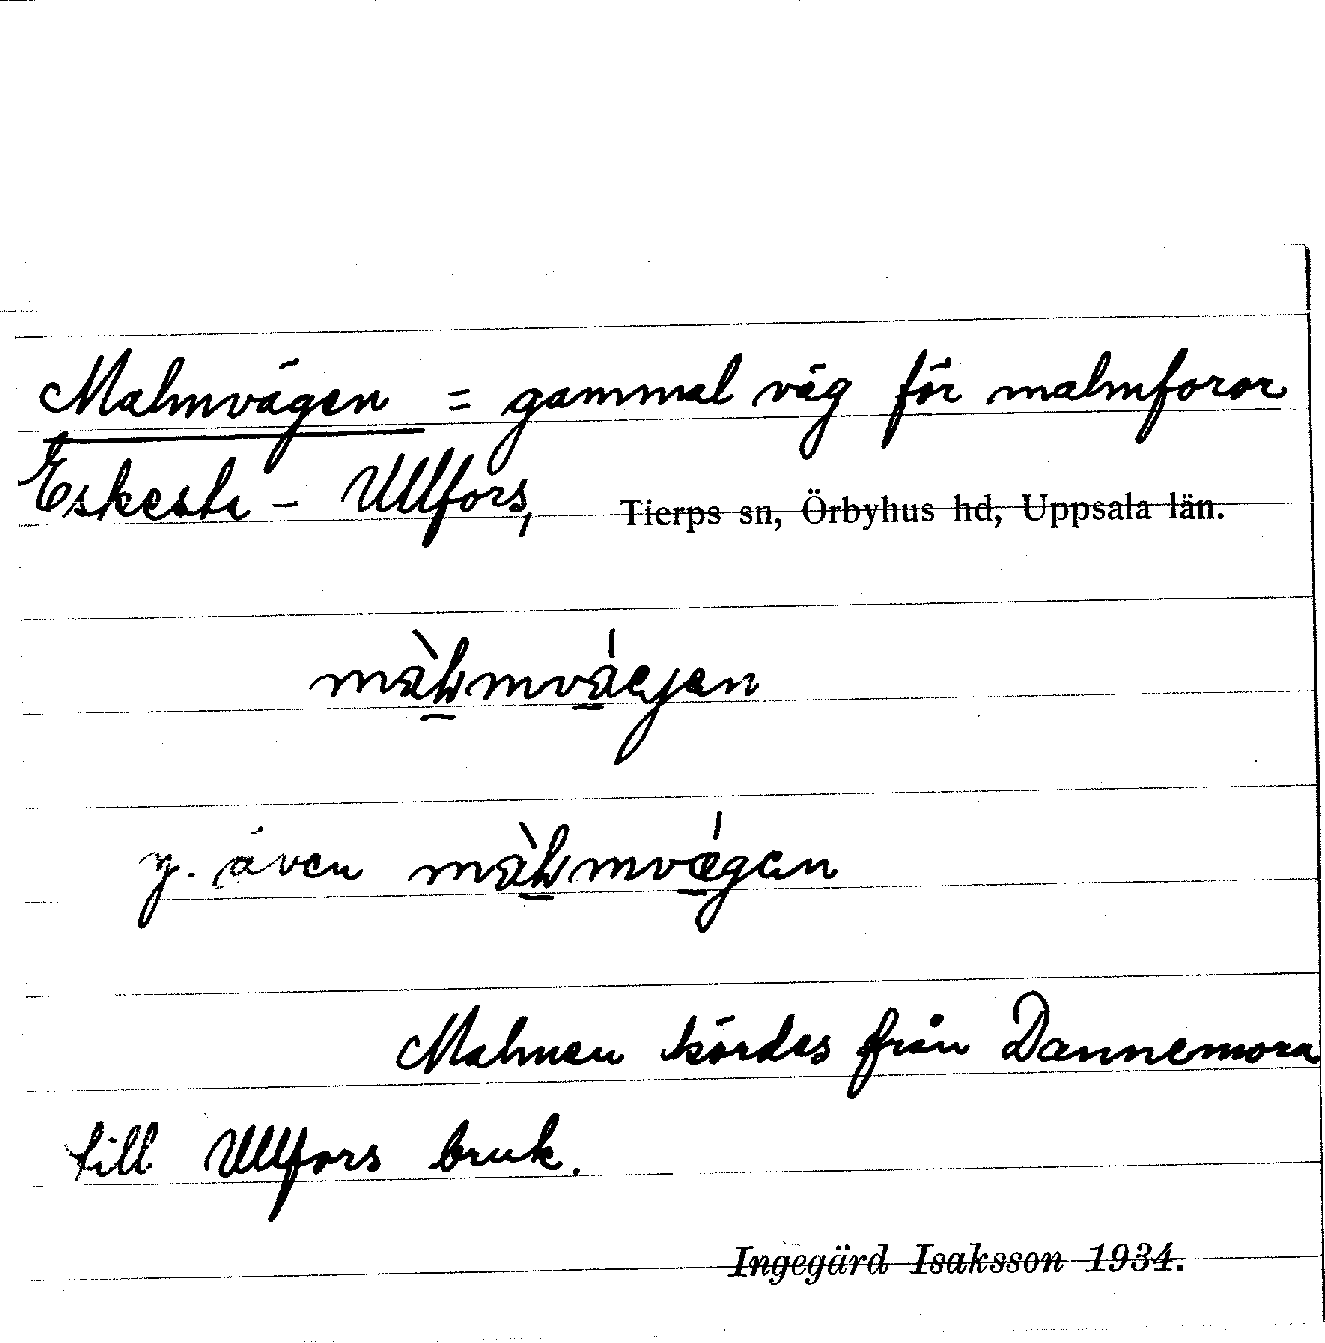 Malmvägen = gammal väg för malmforor
Eskesta - Ullfors, Tierps sn, Örbyhus hd, Uppsala län.
y. även
Malmen kördes från Dannemora
till Ullfors bruk.
Ingegärd Isaksson 1934.